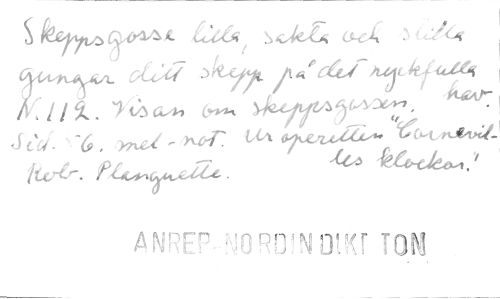 Skeppsgosse lilla, sakta och stilla
gungar ditt skepp på det nyckfulla
hav.
N. 112. Visan om skeppsgossen.
Sid. 56. mel-not. Ur operetten "Cornevil-
les klockor."
Rob. Planquette.
ANREP-NORDIN DIKT TON